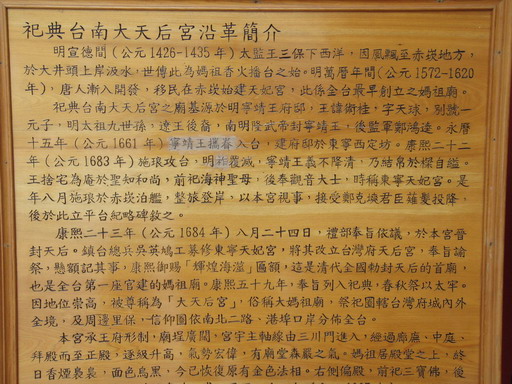 祀典台南大天后宮沿革簡介
明宣德間（公元1426-1435年）太監王三保下西洋，因風飄至赤崁地方，
於大井頭上岸汲水，世傳此為媽祖香火播台之始。明萬曆年間（公元1572-1620
年），唐人漸入開發，移民在赤崁始建天妃宮，此係全台最早創立之媽祖廟。
祀典台南大天后宮之廟基源於明寧靖王府邸，王諱術桂，字天球，別號一
元子，明太祖九世孫，遼王後裔，南明隆武帝封寧靖王，後監軍鄭鴻逵。永曆
十五年（公元1661年）寧靖王攜眷入台，建府邸於東寧西定坊。康熙二十二
年（公元1683年）施琅攻台，明祚覆滅，寧靖王義不降清，乃結帛於樑自縊。
王捨宅為庵於聖知和尚，前祀海神聖母，後奉觀音大士，時稱東寧天妃宮。是
年八月施琅於赤崁泊艦，整旅登岸，以本宮視事，接受鄭克塽君臣薙髮投降，
後於此立平台紀略碑敍之。
康熙二十三年（公元1684年）八月二十四日，禮部奉旨依議，於本宮晉
封天后。鎮台總兵吳英鳩工募修東寧天妃宮，將其改立台灣府天后宮，奉旨諭
祭，懸額記其事，康熙御賜「輝煌海澨」匾額，這是清代全國勅封天后的首廟，
也是全台第一座官建的媽祖廟。康熙五十九年，奉旨列入祀典，春秋祭以太牢。
因地位崇高，被尊稱為「大天后宮」，俗稱大媽祖廟，祭祀圈轄台灣府城內外
全境，及周邊里保，信仰圈依南北二路、港埠口岸分佈全台。
本宮承王府形制，廟埕廣闊，宮宇主軸線由三川門進入，經過廊廡、中庭、
拜殿而至正殿，逐級升高，氣勢宏偉，有廟堂森嚴之氣。媽祖居殿堂之上，終
日香煙裊裊，面色烏黑，今已恢復原有金色法相。右側偏殿，前祀三寶佛，後